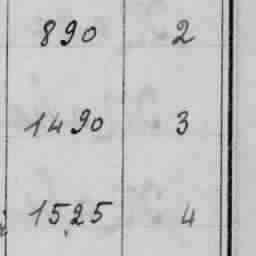 890 2
1490 3
1525 4